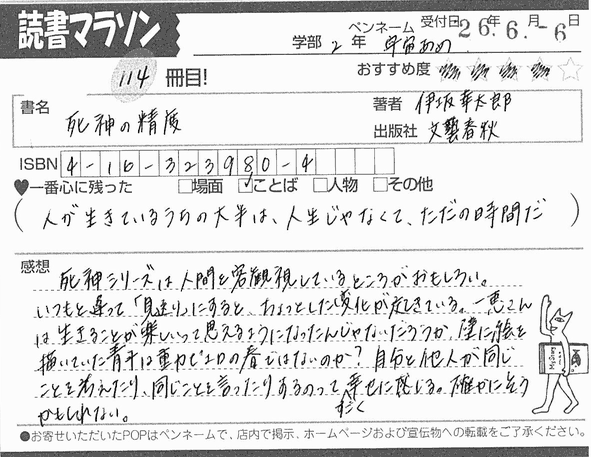 読書マラソン
学部 2年 ペンネーム 宇宙あめ 受付日 26年6月-6日
114冊目!
おすすめ度
書名 死神の精度
著者 伊坂幸太郎
出版社 文藝春秋
ISBN 4-16-323980-4
♥一番心に残った □場面 ☑ことば □人物 □その他
(人が生きているうちの大半は、人生じゃなくて、ただの時間だ)
感想
死神シリーズは人間を客観視しているところがおもしろい。
いつもと違って「見送り」にすると、ちょっとした変化が起きている。一恵さん
は生きることが楽しいって思えるようになったんじゃないだろうか、壁に絵を
描いていた青年は重力ピエロの春ではないのか?自分と他人が同じ
ことを考えたり、同じことを言ったりするのってすごく幸せに感じる。確かにそう
かもしれない。
●お寄せいただいたPOPはペンネームで、店内で掲示、ホームページおよび宣伝物への転載をご了承ください。